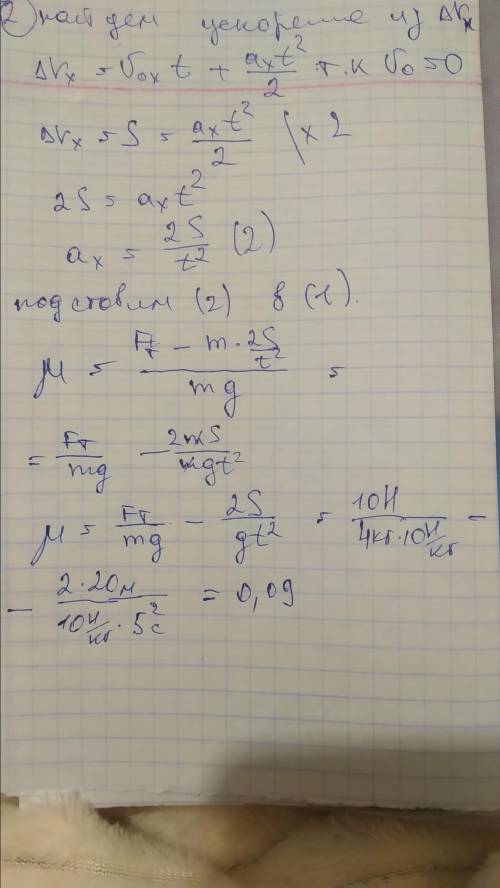 2) найдем ускорение из Δr_x
Δr_x = V_ox t + a_x t²/2 т.к V_0 = 0
Δr_x = S = a_x t²/2 | x 2
2S = a_x t²
a_x = 2S/t² (2)
подставим (2) в (1).
μ = (F_т - m · 2S/t²)/mg =
= F_т/mg - 2mS/mgt²
μ = F_т/mg - 2S/gt² = 10H/(4кг·10H/кг) -
- 2·20м/(10H/кг · 5²с) = 0,09